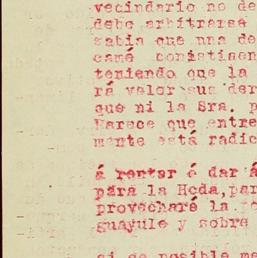 vecindario no de
debe arbitrarse
sabia que una de
came consistien
teniendo que la
rá valor sus der
que ni la Sra. p
Parece que entre
mente está radic
á rentar é dar á
para la Hcda. par
provecharé la
guayule y sobre
si es posible me